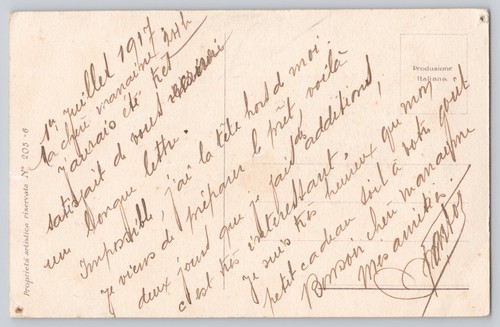 1er Juillet 1917 24h
Ma chère mamaine
J'aurais été très
satisfait de vous
un longue lettre.
Impossible, j'ai la tête hors de moi.
Je viens de préparer le prêt, voilà
deux jours que je fais additions,
c'est très intéressant,
Je suis très heureux que mon
petit cadeau soit à votre goût
Bonsoir chère mamaine
Mes amitiés.
Produzione
Italiana
Proprietà artistica riservata. No. 205-6